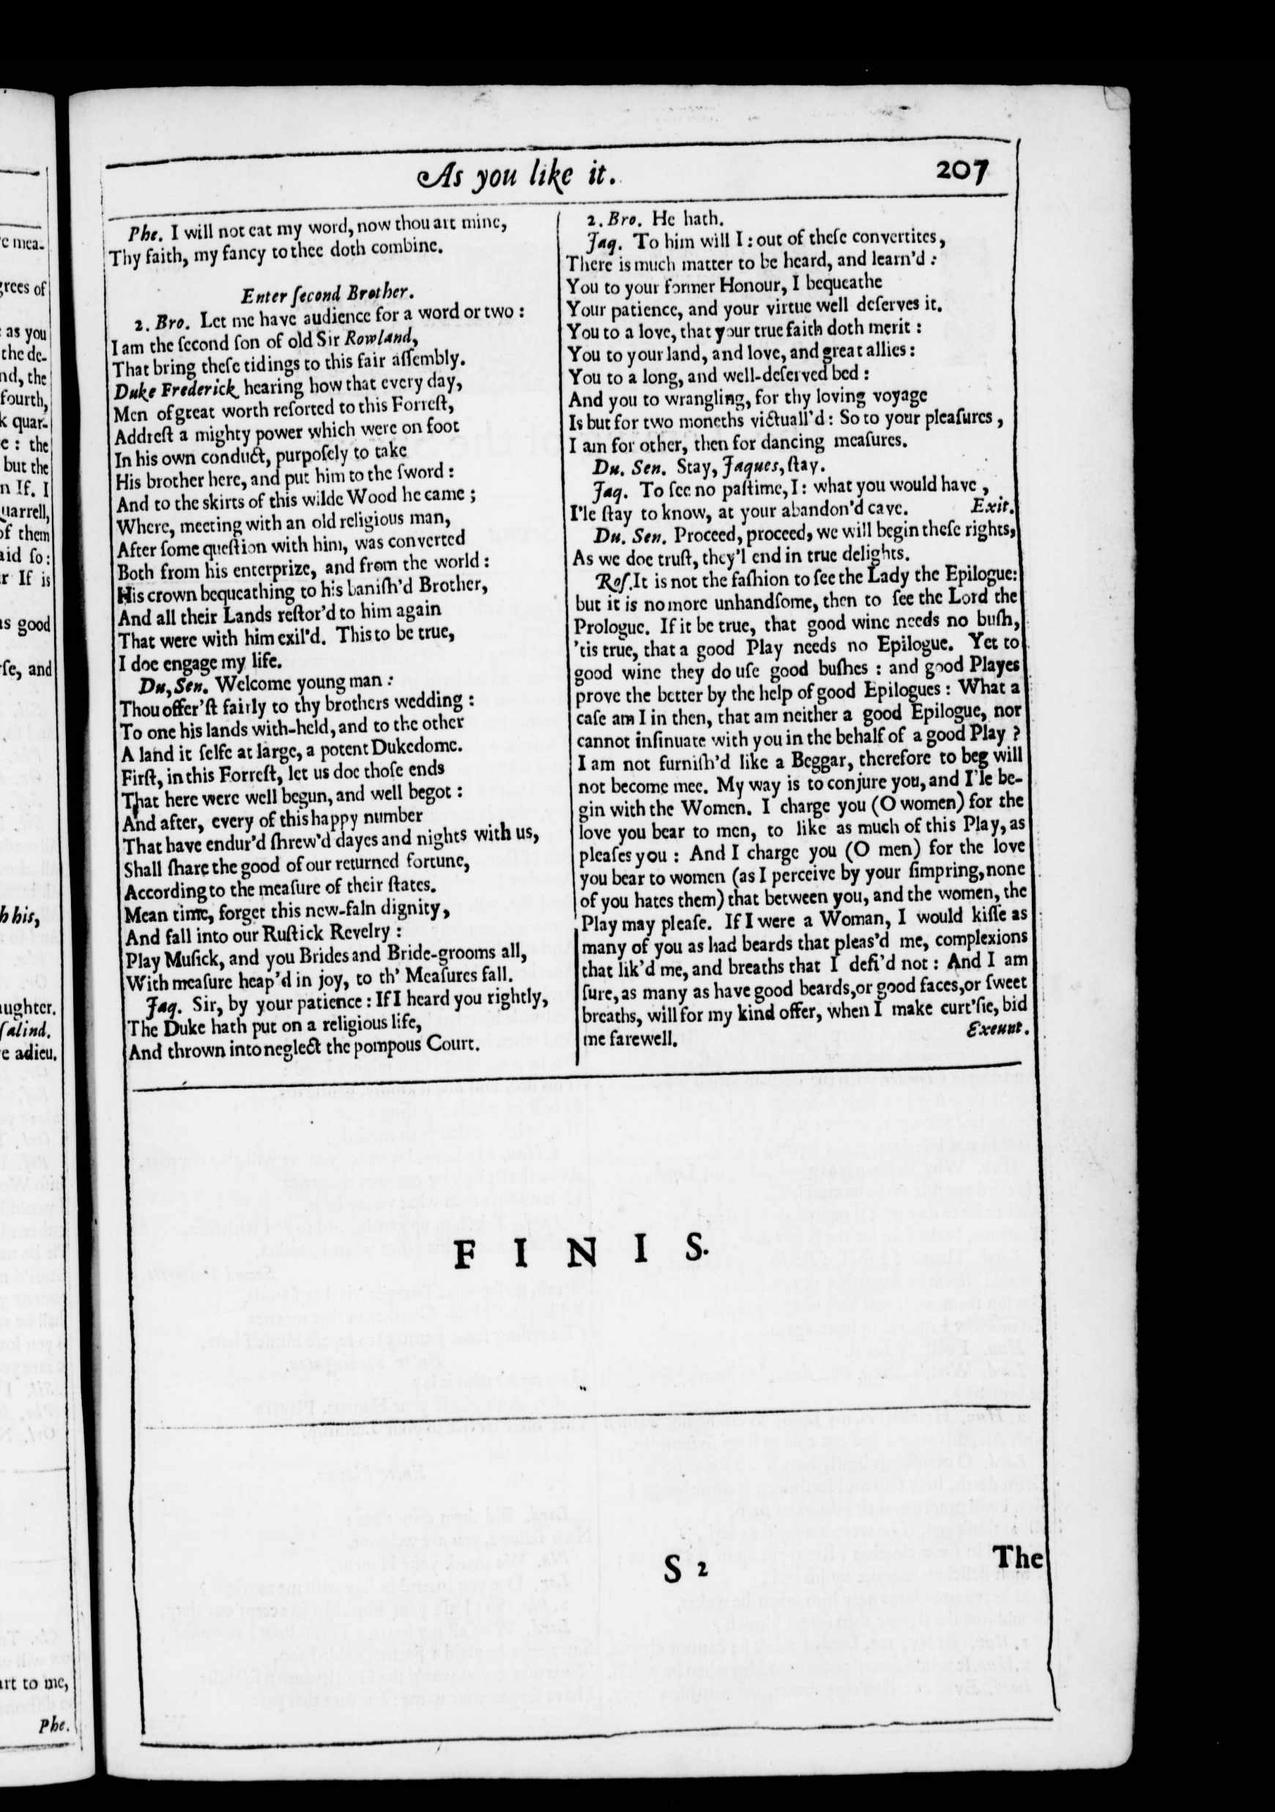 As you like it.
207
Phe. I will not eat my word, now thou art mine,
Thy faith, my fancy to thee doth combine.
Enter ſecond Brother.
2. Bro. Let me have audience for a word or two :
I am the ſecond ſon of old Sir Rowland,
That bring theſe tidings to this fair aſſembly.
Duke Frederick hearing how that every day,
Men of great worth reſorted to this Forreſt,
Addreſt a mighty power which were on foot
In his own conduct, purpoſely to take
His brother here, and put him to the ſword :
And to the skirts of this wilde Wood he came ;
Where, meeting with an old religious man,
After ſome queſtion with him, was converted
Both from his enterprize, and from the world :
His crown bequeathing to his baniſh'd Brother,
And all their Lands reſtor'd to him again
That were with him exil'd. This to be true,
I doe engage my life.
Du, Sen. Welcome young man :
Thou offer'ſt fairly to thy brothers wedding :
To one his lands with-held, and to the other
A land it ſelfe at large, a potent Dukedome.
Firſt, in this Forreſt, let us doe thoſe ends
That here were well begun, and well begot :
And after, every of this happy number
That have endur'd ſhrew'd dayes and nights with us,
Shall ſhare the good of our returned fortune,
According to the meaſure of their ſtates.
Mean time, forget this new-faln dignity,
And fall into our Ruſtick Revelry :
Play Muſick, and you Brides and Bride-grooms all,
With meaſure heap'd in joy, to th' Meaſures fall.
Jaq. Sir, by your patience : If I heard you rightly,
The Duke hath put on a religious life,
And thrown into neglect the pompous Court.
2. Bro. He hath.
Jaq. To him will I : out of theſe convertites,
There is much matter to be heard, and learn'd :
You to your former Honour, I bequeathe
Your patience, and your virtue well deſerves it.
You to a love, that your true faith doth merit :
You to your land, and love, and great allies :
You to a long, and well-deſerved bed :
And you to wrangling, for thy loving voyage
Is but for two moneths victuall'd : So to your pleaſures ,
I am for other, then for dancing meaſures.
Du. Sen. Stay, Jaques, ſtay.
Jaq. To ſee no paſtime, I : what you would have ,
I'le ſtay to know, at your abandon'd cave. Exit.
Du. Sen. Proceed, proceed, we will begin theſe rights,
As we doe truſt, they'l end in true delights.
Roſ. It is not the faſhion to ſee the Lady the Epilogue:
but it is no more unhandſome, then to ſee the Lord the
Prologue. If it be true, that good wine needs no buſh,
'tis true, that a good Play needs no Epilogue. Yet to
good wine they do uſe good buſhes : and good Playes
prove the better by the help of good Epilogues : What a
caſe am I in then, that am neither a good Epilogue, nor
cannot inſinuate with you in the behalf of a good Play ?
I am not furniſh'd like a Beggar, therefore to beg will
not become mee. My way is to conjure you, and I'le be-
gin with the Women. I charge you (O women) for the
love you bear to men, to like as much of this Play, as
pleaſes you : And I charge you (O men) for the love
you bear to women (as I perceive by your ſimpring, none
of you hates them) that between you, and the women, the
Play may pleaſe. If I were a Woman, I would kiſſe as
many of you as had beards that pleas'd me, complexions
that lik'd me, and breaths that I defi'd not : And I am
ſure, as many as have good beards, or good faces, or ſweet
breaths, will for my kind offer, when I make curt'ſie, bid
me farewell. Exeunt.
FINIS.
S 2
The
mea-
grees of
as you
the de-
nd, the
fourth,
k quar-
e : the
but the
n If. I
uarrell,
of them
aid ſo:
r If is
as good
ſe, and
h his,
aughter.
ſalind.
e adieu.
art to me,
Phe.